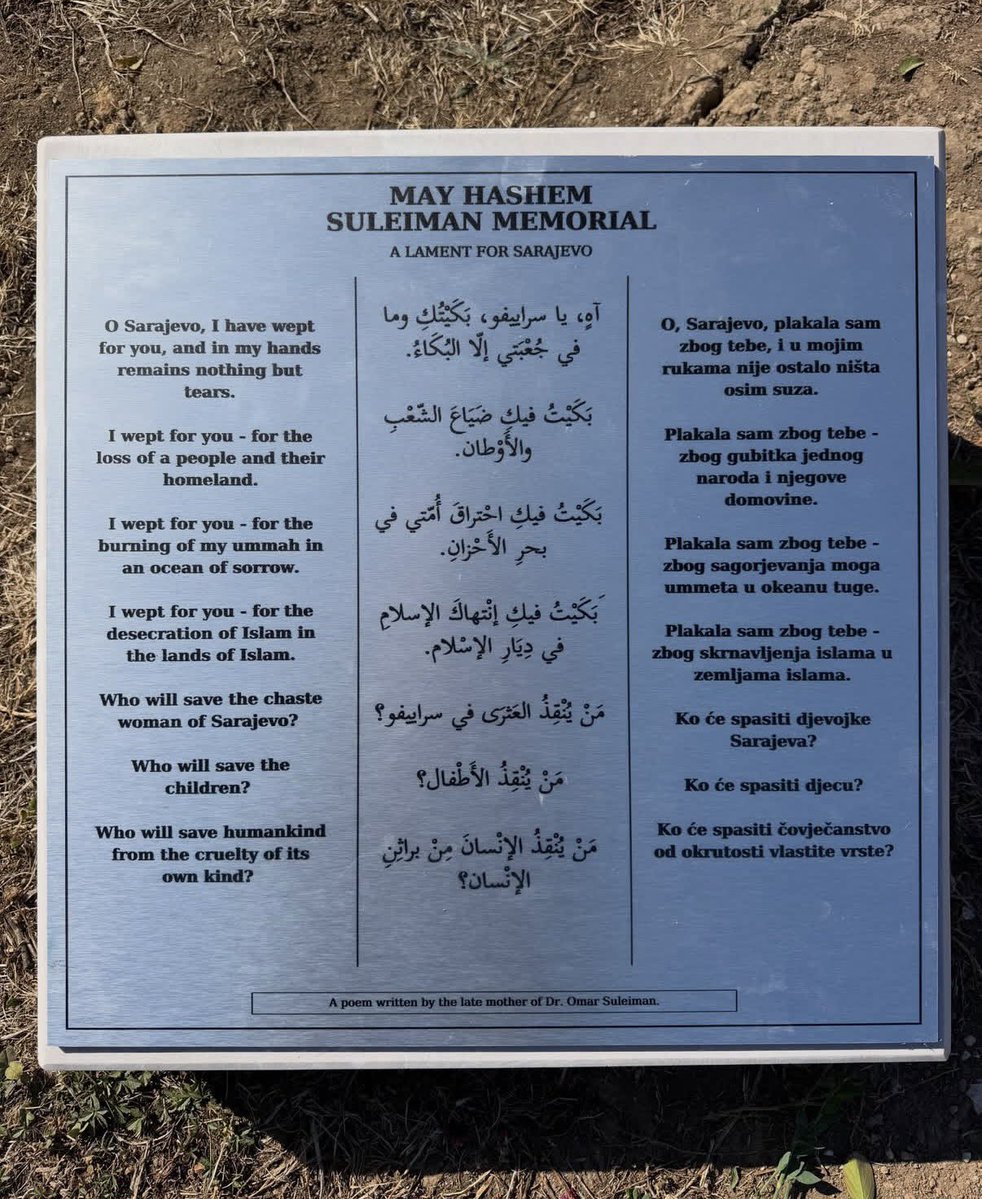 MAY HASHEM
SULEIMAN MEMORIAL
A LAMENT FOR SARAJEVO
O Sarajevo, I have wept
for you, and in my hands
remains nothing but
tears.
I wept for you - for the
loss of a people and their
homeland.
I wept for you - for the
burning of my ummah in
an ocean of sorrow.
I wept for you - for the
desecration of Islam in
the lands of Islam.
Who will save the chaste
woman of Sarajevo?
Who will save the
children?
Who will save humankind
from the cruelty of its
own kind?
آهٍ، يا سراييفو، بَكَيْتُكِ وما
في جُعْبَتي إلّا البُكَاءُ.
بَكَيْتُ فيكِ ضَيَاعَ الشّعْبِ
والأَوْطان.
بَكَيْتُ فيكِ احْتراقَ أُمّتي في
بحرِ الأَحْزانِ.
َبَكَيْتُ فيكِ إنْتهاكَ الإسلامِ
في دِيَارِ الإسْلام.
مَنْ يُنْقِذُ العَثرَى في سراييفو؟
مَنْ يُنْقِذُ الأَطْفال؟
مَنْ يُنْقِذُ الإنْسانَ مِنْ براثِنِ
الإنْسان؟
O, Sarajevo, plakala sam
zbog tebe, i u mojim
rukama nije ostalo ništa
osim suza.
Plakala sam zbog tebe -
zbog gubitka jednog
naroda i njegove
domovine.
Plakala sam zbog tebe -
zbog sagorjevanja moga
ummeta u okeanu tuge.
Plakala sam zbog tebe -
zbog skrnavljenja islama u
zemljama islama.
Ko će spasiti djevojke
Sarajeva?
Ko će spasiti djecu?
Ko će spasiti čovječanstvo
od okrutosti vlastite vrste?
A poem written by the late mother of Dr. Omar Suleiman.